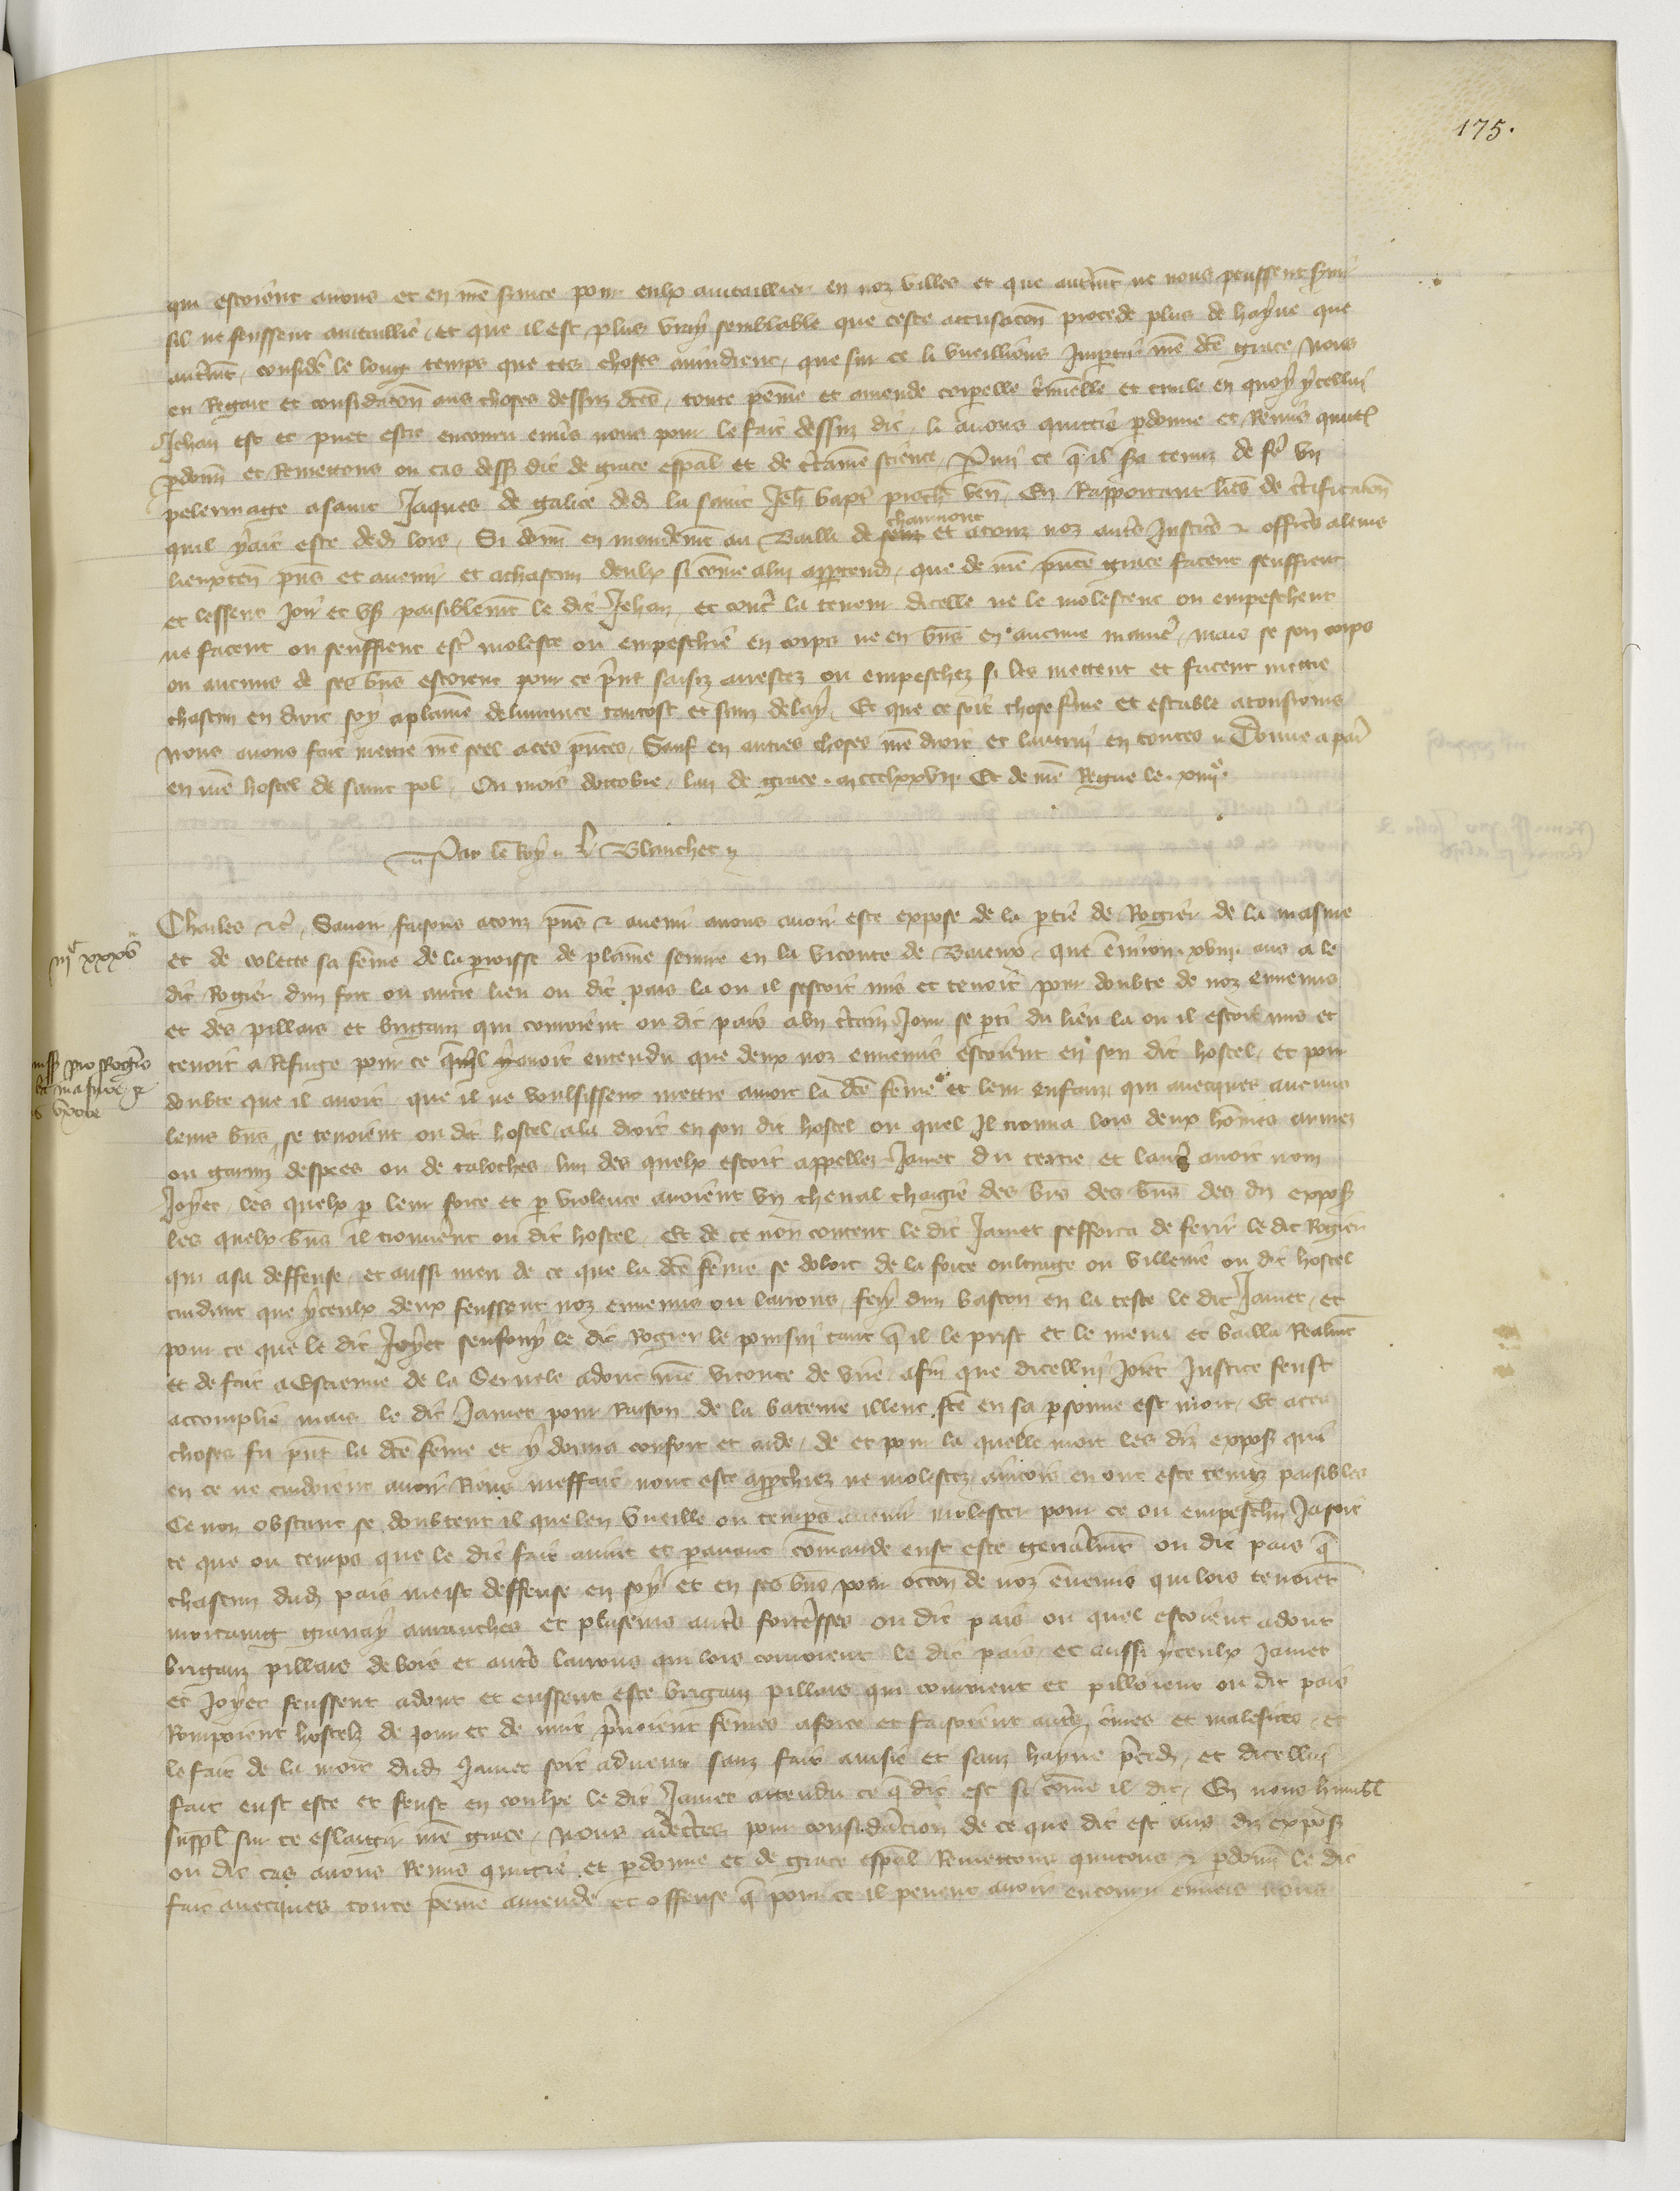 175.
qui estoient avons et en nre service pour eulx avitaillier en noz villes et que autremt ne nous peussent servir
sil ne feussent avitaillie, et que il est plus vray semblable que ceste accusacon procede plus de hayne que
autremt, considere le long temps que ces choses avindrent, que sur ce li vueillions impartir nre dce grace, Nous
en Regart et consideracon aus choses dessuz dces, toute peine et amende corpelle criminelle et civile en quoy ycellui
Jehan est et puet estre encouru envs nous pour le fait dessuz dit, li avons quictie pdonne et Remis quictons
pdonn et Remettons ou cas dessus dit de grace espal et de ctaine science, Pmi ce q il sera tenuz de fe un
pelerinage a saint Jaques de galice dedens la saint Jeh bapte proch ven, En Rapportant lres de ctificacon
quil y ait este dedens lors, Si donn en mandemt au Bailli de chaumont et a touz noz autres Justiciers & officiers a leurs
lieuxten pns et avenir et a chascun deulx si come a lui apptend, que de nre pnte grace facent seuffrent
et lessent joir et user paisiblemt le dit Jehan, et contre la teneur dicelle ne le molestent ou empeschent
ne facent ou seuffrent estre moleste ou empeschie en corps ne en bns en aucune maniere, mais se son corps
ou aucuns de ses bns estoient pour ce prins saisiz arrestez ou empeschez si les mettent et facent mettre
chascun en droit soy a plaine delivrance tantost et sanz delay, Et que ce soit chose ferme et estable a tousiours
Nous avons fait mettre nre seel a ces pntes, Sauf en autres choses nre droit et lautrui en toutes, Donne a paris
en nre hostel de saint pol, Ou mois doctobre, lan de grace m ccc lxxvii Et de nre Regne le xiiiie.
Par le Roy Blanchet
Charles etc, Savoir faisons a touz pns & avenir avons avoir este expose de la ptie de Rogier de la masure
iiic xxxv
et de colette sa feme de la proisse de plaine semve en la viconte de Baieux, que environ xviii ans a le
dit Rogier dun fort ou autre lieu ou dit pais la ou il sestoit mis et tenoit pour doubte de noz ennemis
et des pillars et brigans qui couroient ou dit pais a un ctain Jour se pti du lieu la ou il estoit mis et
tenoit a Refuge pour ce quil avoit entendu que deux noz ennemis estoient en son dit hostel, et pour
pro Rogero
masure &
uxore
doubte que il avoit que il ne voulsissent mettre a mort la dce feme et leur enfanz qui avecques aucuns
leurs bns se tenoient ou dit hostel, ala droit en son dit hostel ou quel Il trouva lors deux homes armez
ou garniz despees ou de taloches lun des quelx estoit appellez Jamet du tertre et lautre avoit nom
Joyet, les quelx p leur force et p violence avoient un cheval chargie des bns des diz exposs
les quelx bns il trouverent ou dit hostel, Et de ce non content le dit Jamet sefforca de ferir le dit Rogier
qui a sa deffense, et aussi meu de ce que la dce feme se doloit de la force oultrage ou villenie ou dit hostel
cuidant que yceulx deux feussent noz ennemis ou larrons, fery dun baston en la teste le dit Jamet, et
pour ce que le dit Joyet senfouy le dit Rogier le poursui tant q il le prist et le mena et bailla Realmt
et de fait a Estienne de la Servele adonc nre viconte de vire afin que dicellui Joiet Justice feust
accomplie mais le dit Jamet pour Raison de la bateure illent fce en sa psonne est mort, Et a ces
choses fu pnt la dce feme et y donna confort et aide, de et pour la quelle mort les diz exposs qui
en ce ne cuidoient avoir Riens meffait nont este approchiez ne molestez aincois en ont este tenuz paisibles
Ce non obstant se doubtent il que len vueille ou temps avenir molester pour ce ou empeschier Ja soit
ce que ou temps que le dit fait avint et pavant comande eust este genalmt ou dit pais q
chascun dudit pais meist deffense en soy et en ses bns pour occon de noz ennemis qui lors tenoient
mortaing granay avranches et pluseurs autres forteresses ou dit pais ou quel estoient adont
brigans pillars de bois et autres larrons qui lors couroient le dit pais et aussi yceulx Jamet
et Joyet feussent adont et eussent este brigans pillars qui couroient et pilloient ou dit pais
Rompoient hostelz de jour et de nuit prenoient femes a force et faisoient autres crimes et malefices, et
le fait de la mort dudit Jamet soit advenu sanz fait avisie et sanz hayne preced, et dicellui
fait eust este et feust en coulpe le dit Jamet attendu ce q dit est si come il dit, En nous humbl
suppl sur ce eslargir nre grace, Nous adcertes pour consideracion de ce que dit est aus diz exposs
ou dit cas avons Remis quictie et pdonne et de grace espal Remettons quictons & pdonn le dit
fait avecques toute peine amende et offense q pour ce il peuent avoir encouru envers nous